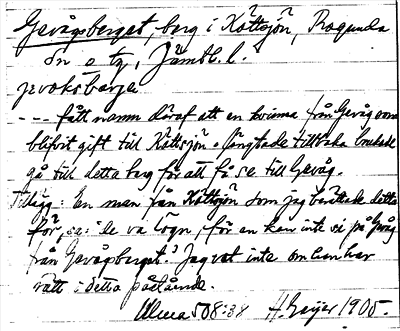 Gevågsberget, berg i Kättsjön, Ragunda
sn o tg, Jämtl. l.
jevoksbärje
--- fått namn däraf att en kvinna från Gevåg som
blifvit gift till Kättsjön o längtade tillbaka brukade
gå till detta berg för att få se till Gevåg.
Tillägg: En man från Kättsjön som jag berättade detta
för, sa: "De va lögn, för en kan inte se på Gevåg
från Gevågsberget." Jag vet inte om han har
rätt i detta påstående.
Ulma 508:38 H. Geijer 1905.